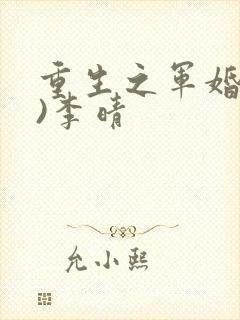 重生之军婚
)李晴
允小熙